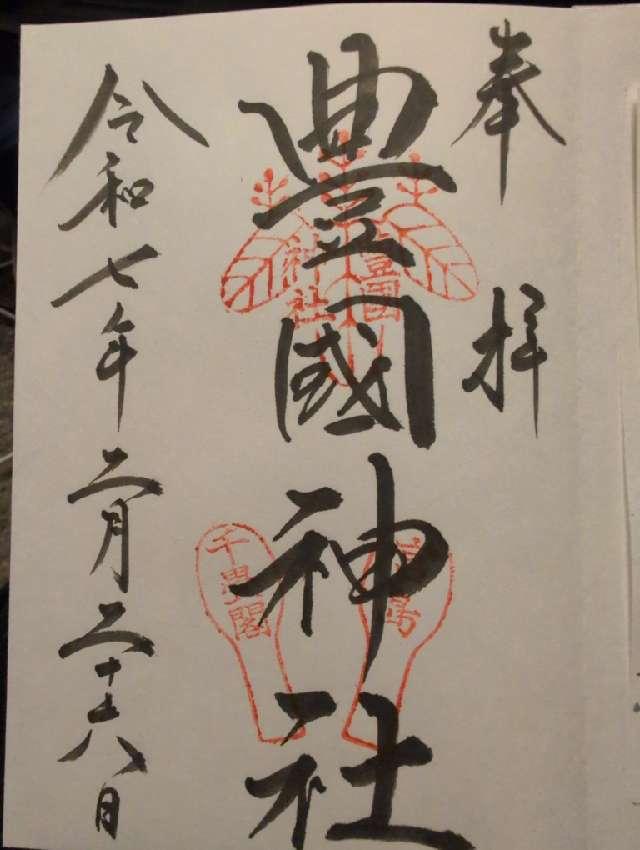 奉拝
豊國神社
豊國
神社
千畳閣
令和七年二月二十六日